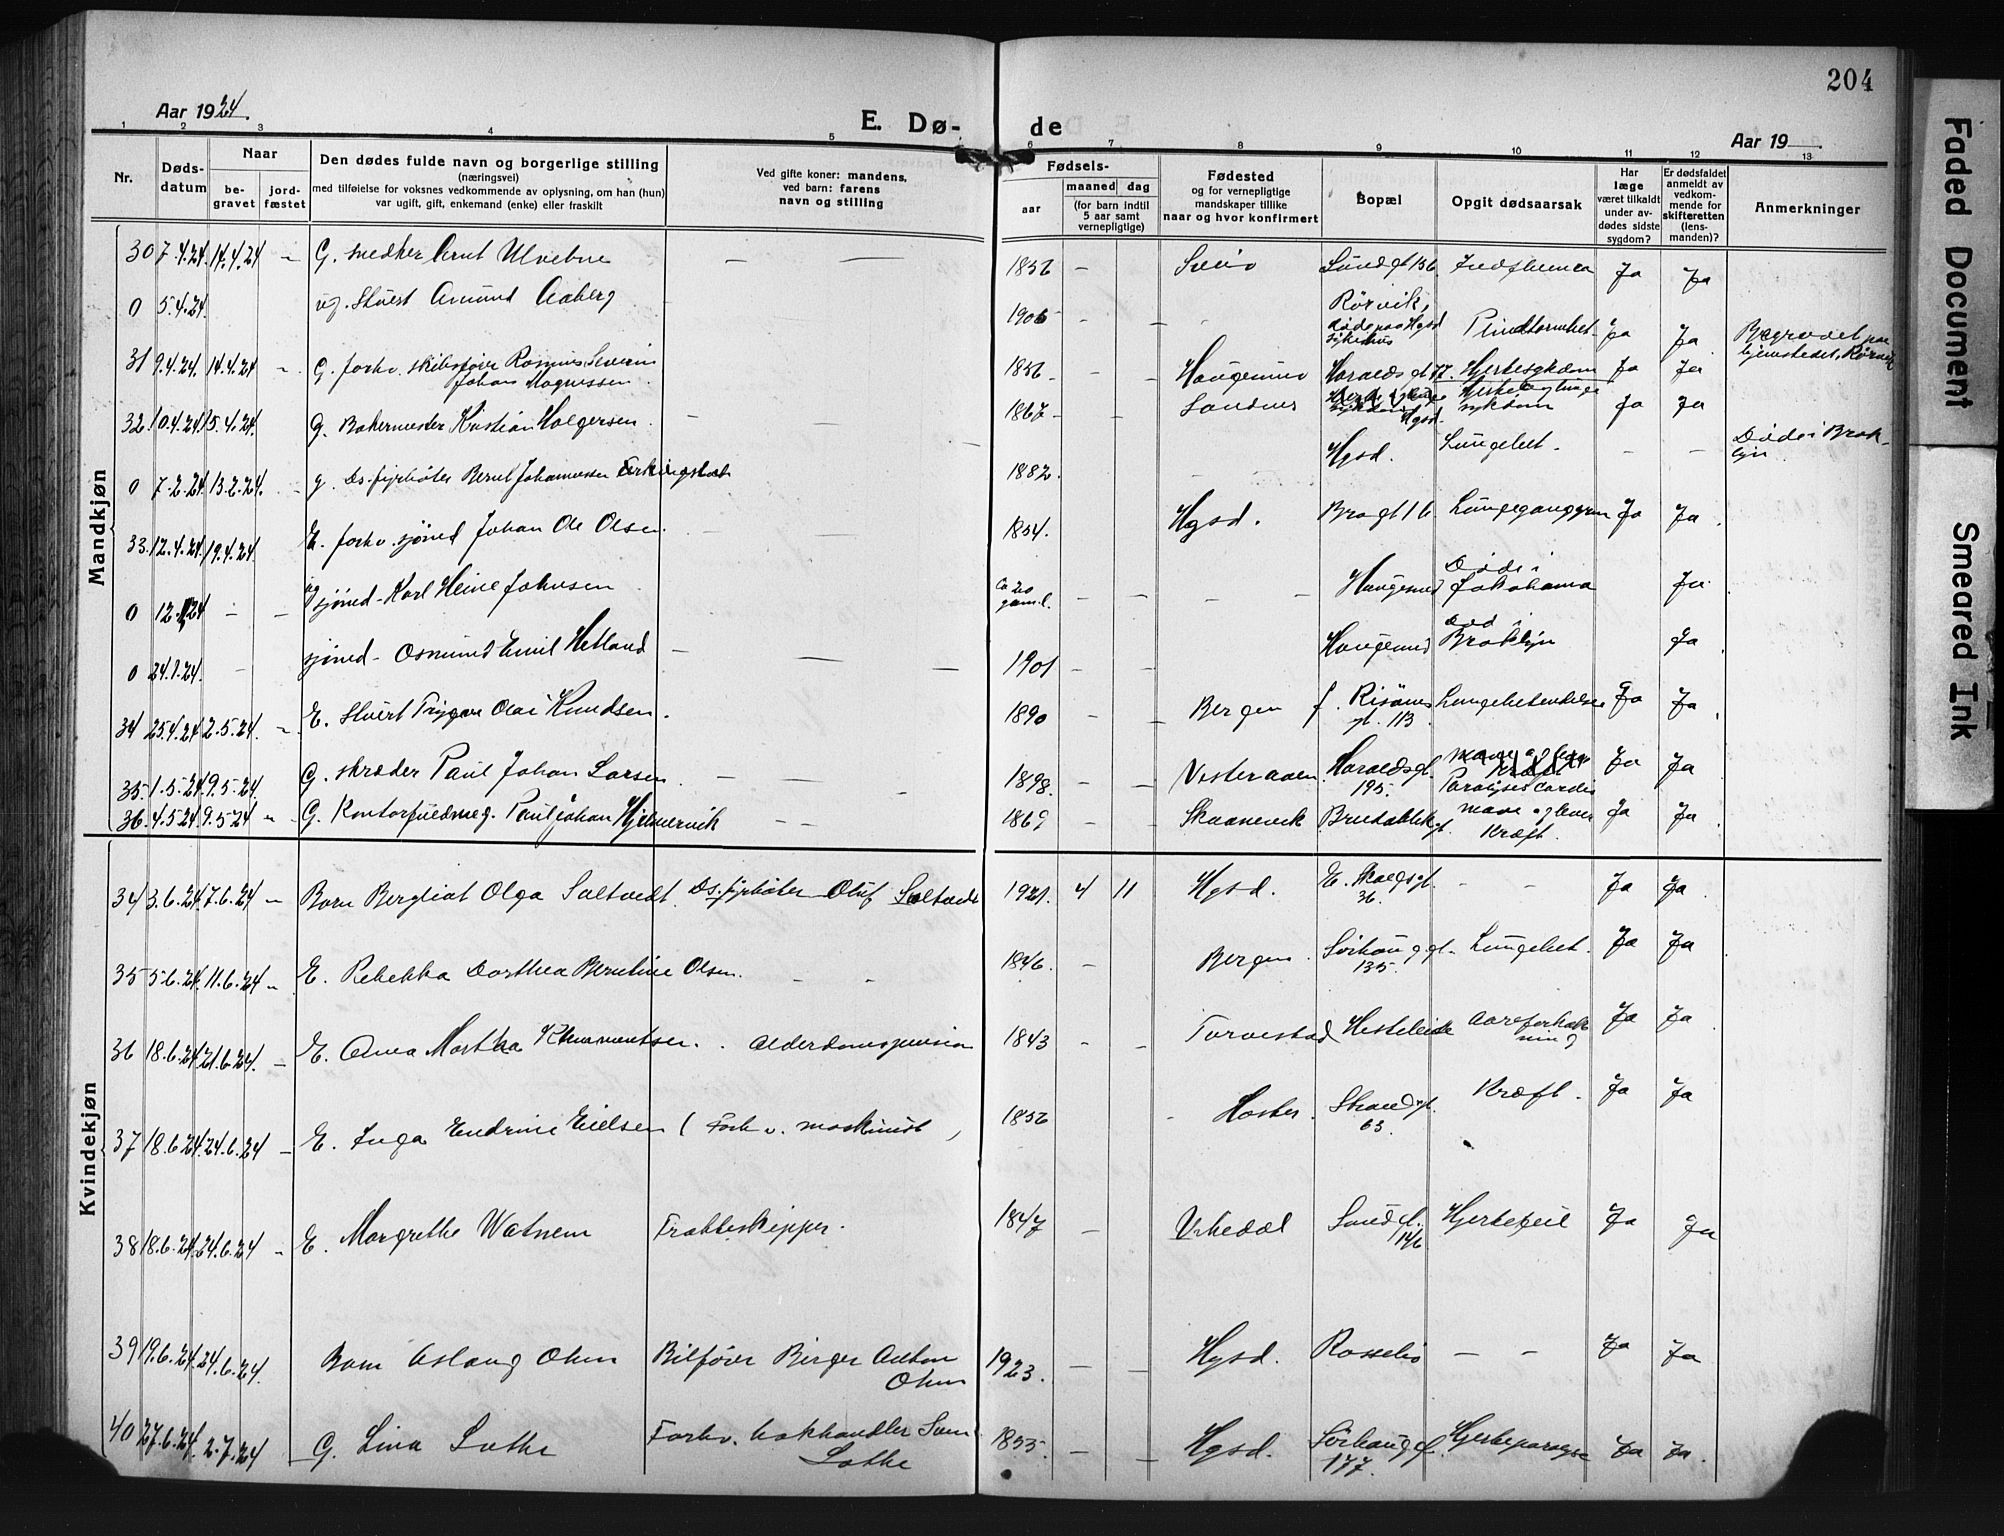 204
Aar 1924.
E. Dø-
de
Aar 19
1 2 3 4 5 6 7 8 9 10 11 12 13
Nr.
Døds-
datum
Naar
be-
gravet
jord-
fæstet
Den dødes fulde navn og borgerlige stilling
(næringsvei)
med tilføielse for voksnes vedkommende av oplysning, om han (hun)
var ugift, gift, enkemand (enke) eller fraskilt
Ved gifte koner: mandens,
ved barn: farens
navn og stilling
Fødsels-
aar
maaned
dag
(for barn indtil
5 aar samt
vernepligtige)
Fødested
og for vernepligtige
mandskaper tillike
naar og hvor konfirmert
Bopæl
Opgit dødsaarsak
Har
læge
været tilkaldt
under av-
dødes sidste
sygdom?
Er dødsfaldet
anmeldt av
vedkom-
mende for
skifteretten
(lens-
manden)?
Anmerkninger
Mandkjøn
30 7.4.24. 14.4.24 - G. snedker Ulvebne - — 1856 - Sveio Sundgt 156 Ja Ja
0 5.4.24. ug. Stuert Amund Aaberg 1906 - - Rørvik, døde paa Hgsd sykehus Ja Ja Begravet paa hjemstedet, Rørvik
31 9.4.24. 14.4.24 - G. forhv. skibsfører Rasmus Severin
Johan Magnussen 1856 - - Haugesund Haraldsgt 77. Hjertesykdom Ja Ja
32. 10.4.24. 15.4.24. G. Bakermester Kristian Holgersen. - — 1867 - - Sandnes Hgsd. Hjerte og lunge sykdom Ja Ja
0 7.2.24. 13.2.24. - g. Ds. fyrbøter Bernt Johannessen Ferkingstad 1882. - - Hgsd. Lungebet. - - Døde i Brok-
lyn
33. 12.4.24. 19.4.24. E. forhv. sjømd Johan Ole Olsen. - — 1854. Hgsd. Brogt 16 Ja Ja
0 12. 24 - - ug sjømd - Karl Heine Johnsen - — ca 20 gaml. - - - Haugesund Døde i Jokohama Ja
0 24.1.24. - sjømd - Osmund Emil Hetland - — 1901 - - Haugesund Død i Broklyn Ja
34 25.4.24 2.5.24. - E. Stuert Trygve Olai Knudsen. - — 1890 - Bergen f. Risøens gt. 113 Ja Ja
35. 1.5.24. 9.5.24. G. skræder Paul Johan Larsen - - 1898. - - Vesteraalen Haraldsgt. 195. Paralysis cordis Ja Ja
36. 4.5.24 9.5.24 - G. Kontorfuldmeg. Paul Johan Hjelmervik - - 1869 - Skaanevik Kræft. Ja Ja
Kvindekjøn
34 3.6.24. 7.6.24 - Barn Bergliot Olga Saltvedt. Ds. fyrbøter Oluf Saltvedt 1921. 4 11 Hgsd. E. Skaugsgt. 36. - - Ja Ja
35 5.6.24. 11.6.24 - E. Rebekka Dorthea Berntine Olsen. - - 1846. - Bergen. Sørhauggt. 135. Lungebet. Ja Ja
36 18.6.24 21.6.24. - E. Anna Martha . Alderdomspension 1843 - - Torvestad Aareforkalk-
ning Ja Ja
37 18.6.24. 24.6.24 - E. Inga Endrine Eielsen ( Forhv. maskinist ) 1856 - Strandgt. 63. Kræft. Ja Ja
38 18.6.24. 24.6.24 - E. Margrethe Watnem Fragteskipper. 1847 - Vikedal Sundgt. 146 Hjertefeil Ja Ja
39 19.6.24. 24.6.24. Barn Aslaug Ohm Bilfører Birger Anton
Ohm 1923. - - Hgsd. Rossebø - - Ja Ja
40 27.6.24. 2.7.24 G. Lina Lothe Forhv. Lothe 1855. - - Hgsd. Sørhauggt. 177. Ja Ja
Faded Document
Smeared Ink